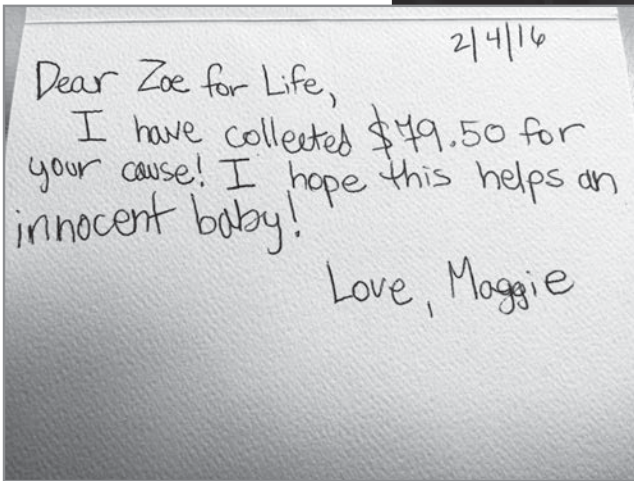 2/4/16
Dear Zoe for Life,
I have collected $79.50 for
your cause! I hope this helps an
innocent baby!
Love, Maggie